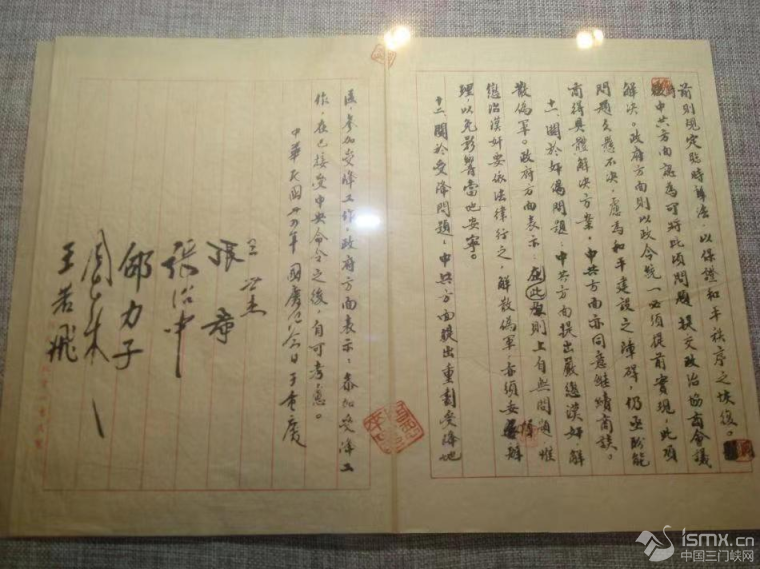 前則規定臨時辦法，以保證和平秩序之恢復。
中共方面認為可將此項問題，提交政治協商會議
解決。政府方面則以政令統一必須提前實現，此項
問題久懸不決，應為和平建設之障碍，仍亟盼能
商得具體解決方案，中共方面亦同意繼續商談。
十一、關於奸偽問題：中共方面提出嚴懲漢奸，解
散偽軍。政府方面表示：在此原則上自無問題，惟
懲治漢奸要依法律行之，解散偽軍，亦須妥慎辦
理，以免影響當地安寧。
十二、關於受降問題：中共方面提出重劃受降地
區，參加受降工作，政府方面表示：參加受降工
作，在已接受中央命令之後，自可考慮。
中華民國卅四年國慶紀念日于重慶
王世杰
張羣
張治中
邵力子
周恩來
王若飛
ismx.cn
中国三门峡网